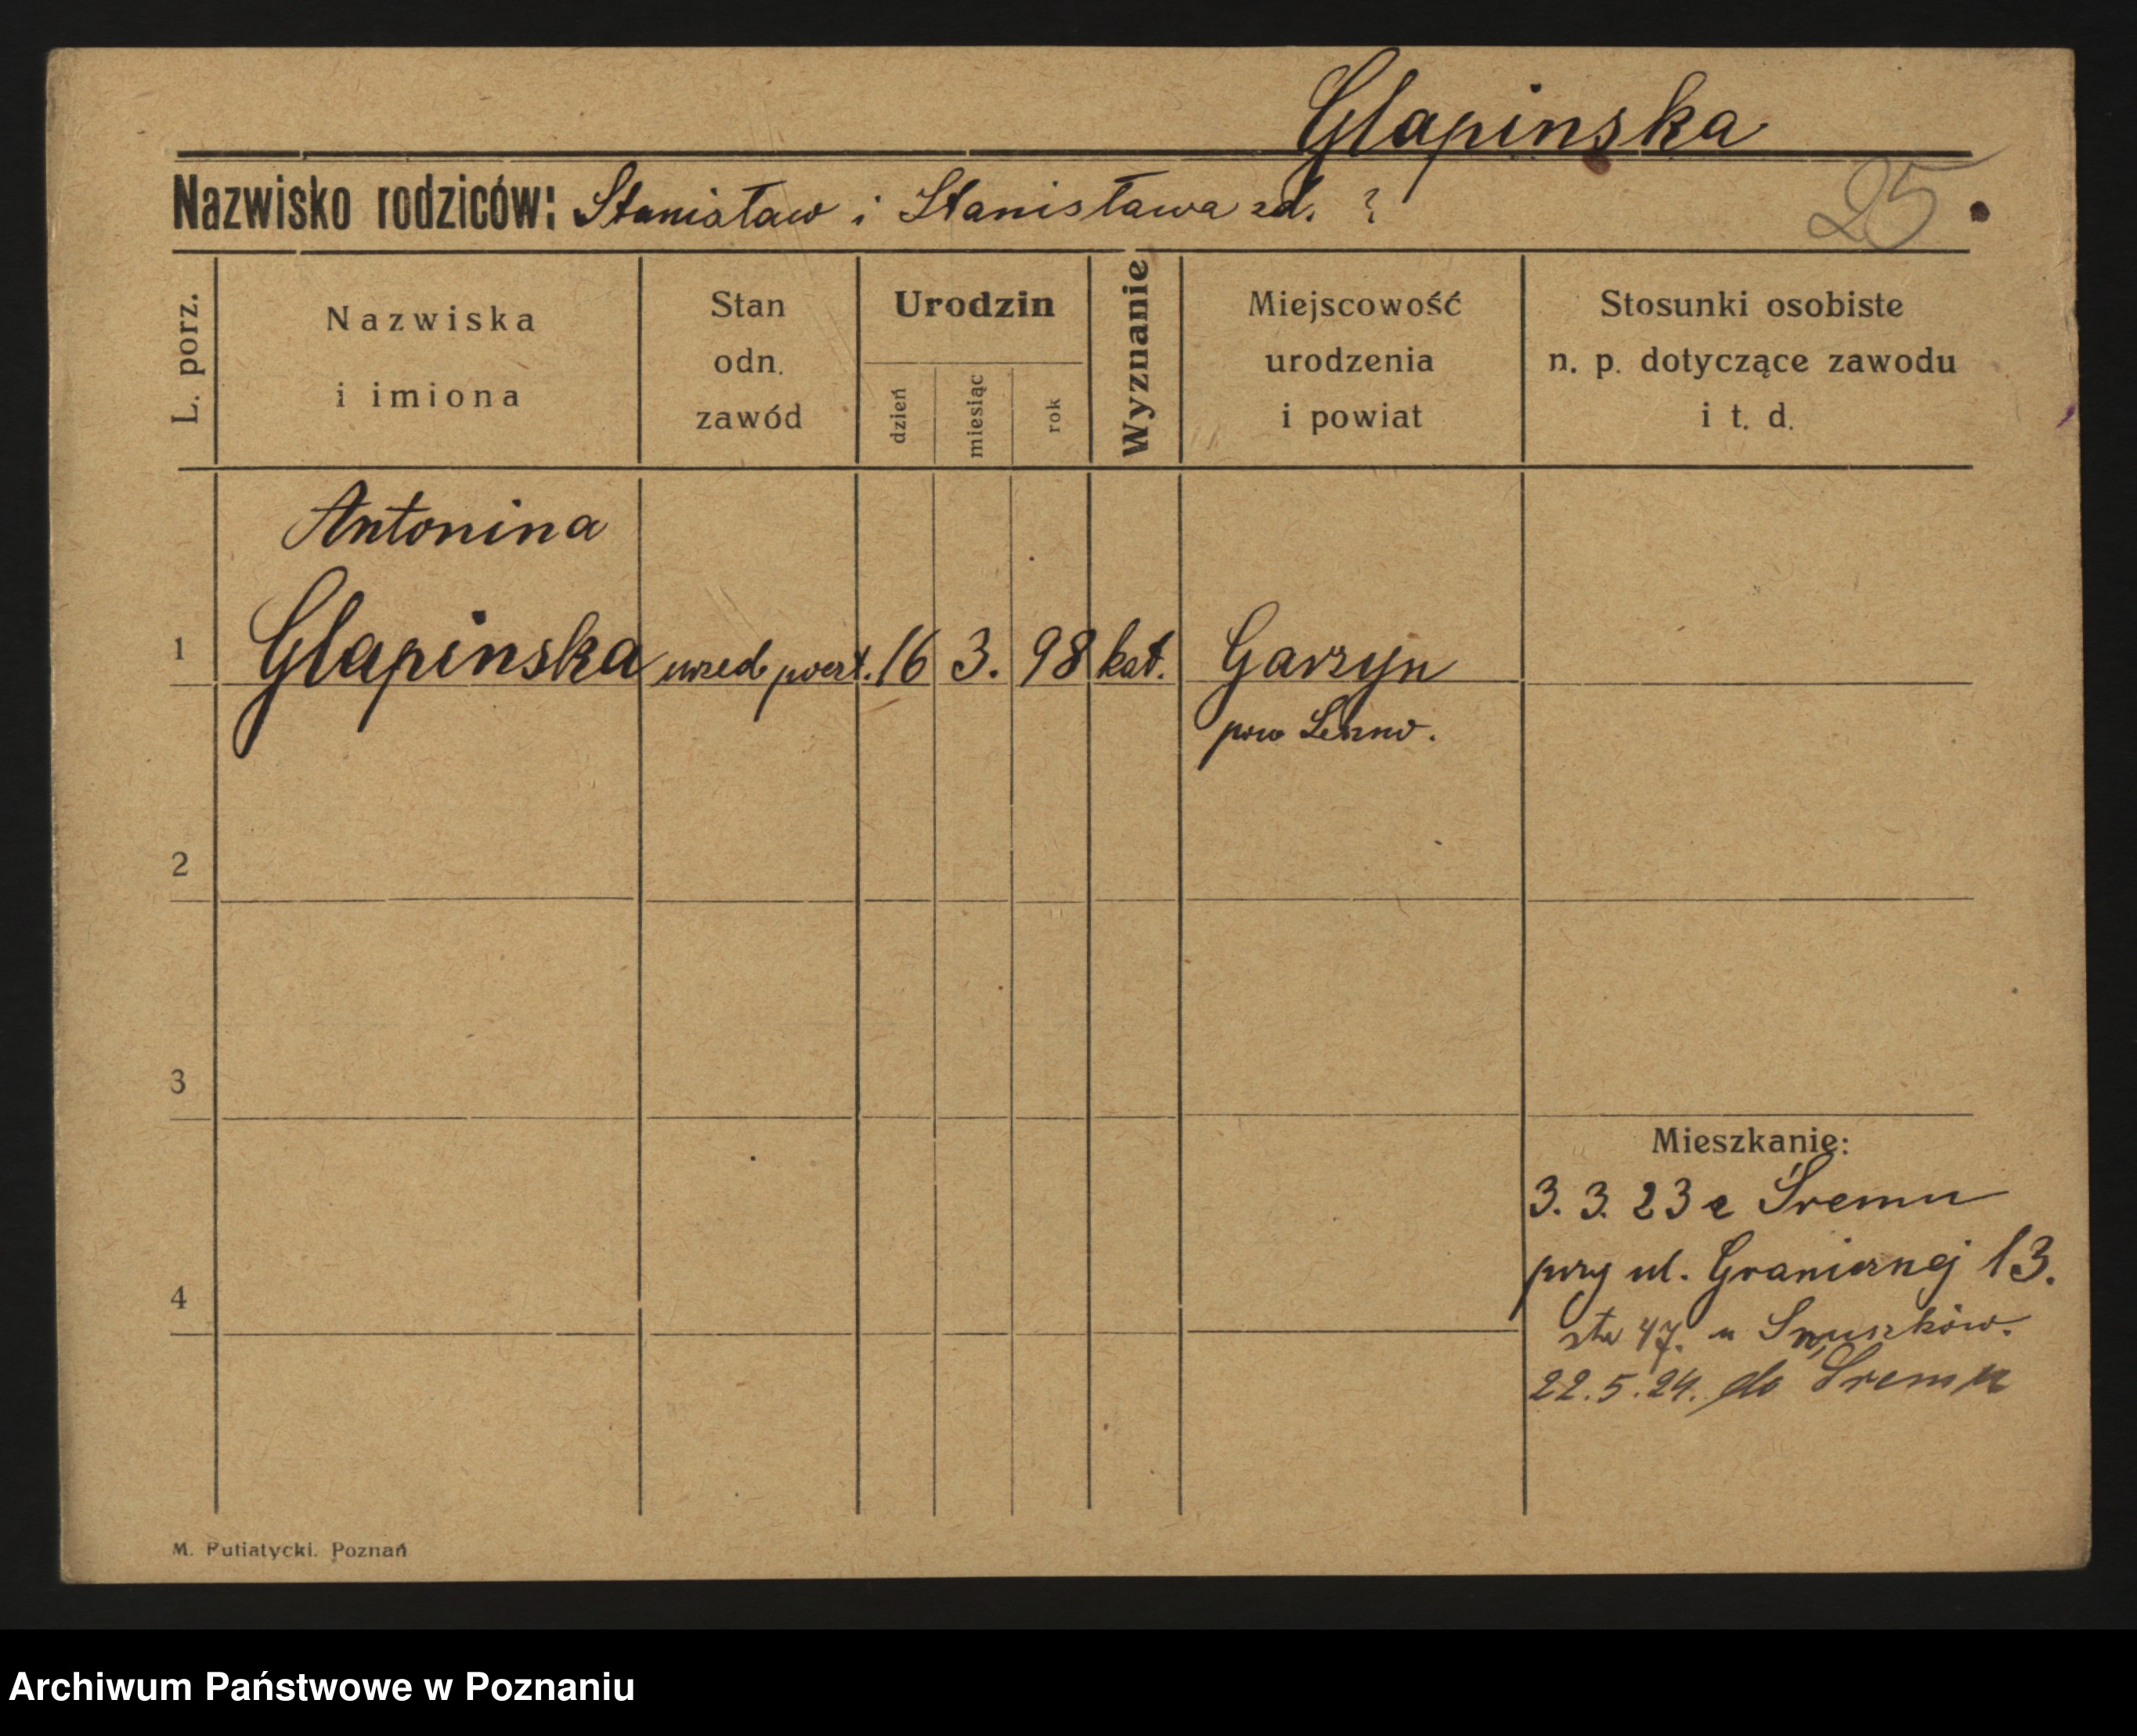 Glapinska
Nazwisko rodziców: Stanisław i Stanisława zd. ?
25
L. porz.
Nazwiska
i imiona
Stan
odn.
zawód
Urodzin
dzień
miesiąc
rok
Wyznanie
Miejscowość
urodzenia
i powiat
Stosunki osobiste
n. p. dotyczące zawodu
i t. d.
Antonina
1 Glapinska urzed poczt. 16 3. 98 kat. Garzyn
pow Leszno.
2
3
Mieszkanie:
3. 3. 23 z Śremu
przy ul. Granicznej 13.
4
47. u
22. 5. 24. do Śremu
M. Putiatycki. Poznań
Archiwum Państwowe w Poznaniu